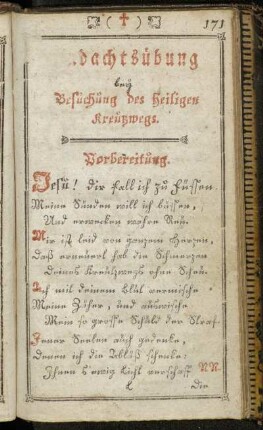 ( † ) 171
dachtsübung
bey
Besuchung des heiligen
Kreützwegs.
Vorbereitung.
Jesu! dir fall ich zu Füssen
Meine Sünden will ich büssen,
Und erwecken wahre Reü.
Mir ist leid von ganzem Herzen,
Daß erneuert hab die Schmerzen
Deines Kreützwegs ohne Scheü.
Ich mit deinem Blut vermische
Meine Zäher, und auswische
Mein so grosse Schuld der Straf
Jener Seelen auch gedenke,
Denen ich die Abläß schenke:
Ihnen Ewig Licht verschaff NN.
Die